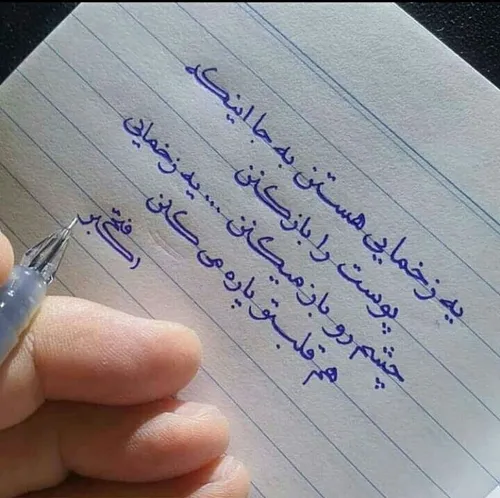 یه زخمایی هستن به جا اینکه
پوست را باز کنن
چشم رو باز میکنن ... یه زخمایی
هم قلبتو پاره می کنن